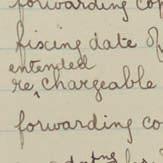 forwarding cop
fixing date of
entended
re, chargeable
forwarding co